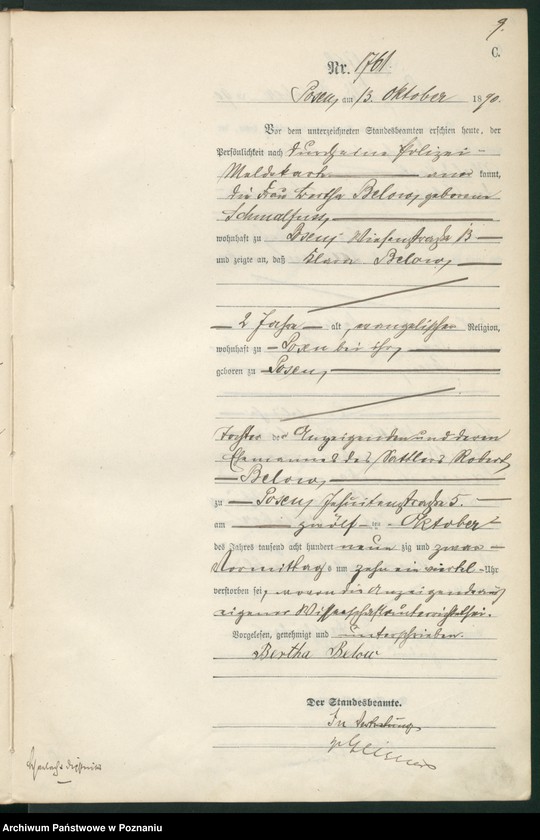 9.
C.
Nr. 1761.
Posen, am 13. Oktober 1890.
Vor dem unterzeichneten Standesbeamten erschien heute, der
Persönlichkeit nach durch eine Polizei-
Meldekarte anerkannt,
die Frau Bertha Below, geborene
Schmalfuss,
wohnhaft zu Posen, Wiesenstraße 13
und zeigte an, daß Klara Below,
2 Jahre alt, evangelischer Religion,
wohnhaft zu Posen bei ihr,
geboren zu Posen,
Tochter der Anzeigenden und deren
Ehemannes des Sattlers Robert
Below,
zu Posen, Jesuitenstraße 5.
am zwölften Oktober
des Jahres tausend acht hundert neunzig und zwar
Vormittags um zehn ein viertel Uhr
verstorben sei, wovon die Anzeigende aus
eigener Wissenschaft unterrichtet sei.
Vorgelesen, genehmigt und unterschrieben.
Bertha Below
Der Standesbeamte.
In Vertretung
Archiwum Państwowe w Poznaniu